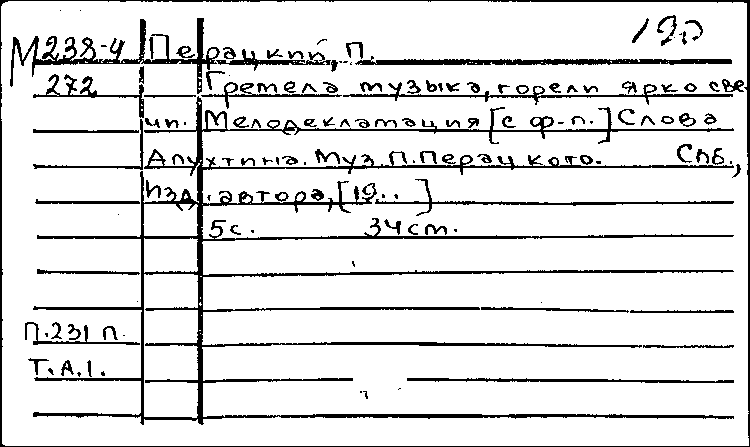 М238-4 Перацкий, П. 19п
272 Гремела музыка, горели ярко све-
чи. Мелодекламация [с ф-п.] Слова
Апухтина. Муз. П. Перацкого. Спб.,
Изд. автора, [19..]
5с. 34см.
П.231 п
Т.А.1.